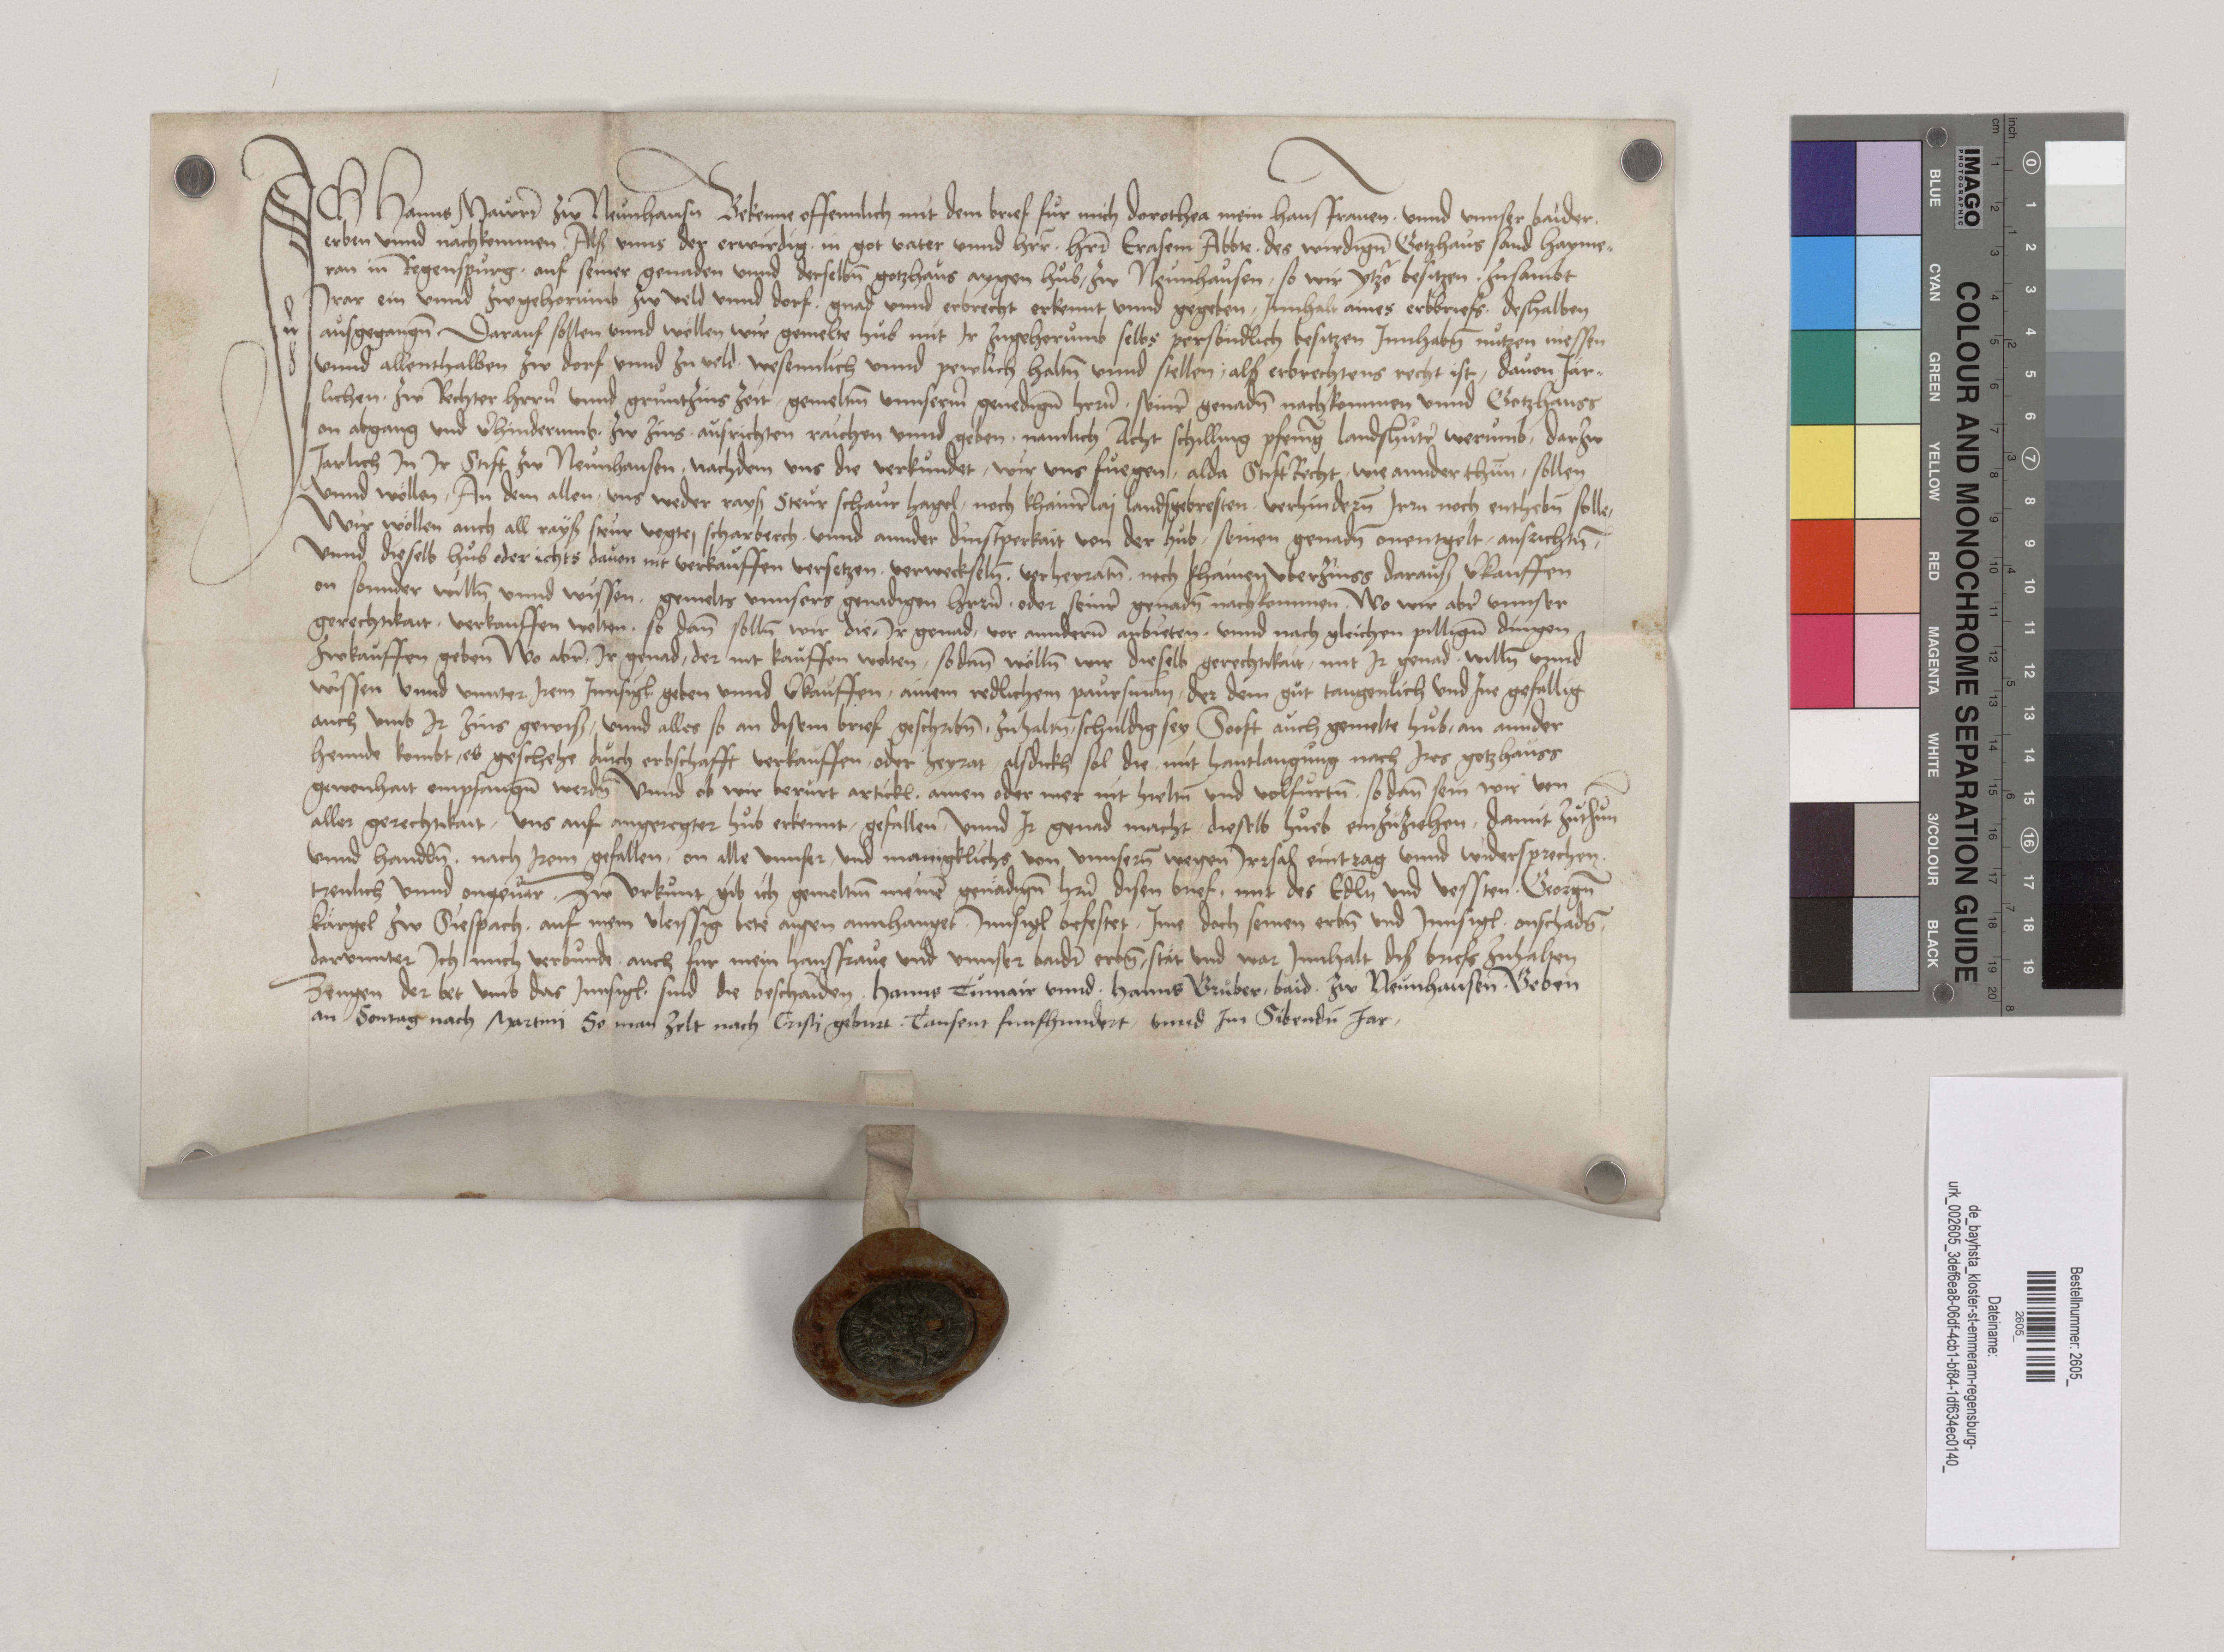 Ich Hanns Maurer zw Neunhausn Bekenne offennlich mit dem brief fur mich dorothea mein hausfrauen. vnnd vnnser baider.
erben vnnd nachkommen. Alß vnns der erwirdig. in got vater vnnd hrr. hrr Erasem Abbte. des wirdign̄ Gotzhaus sand hayme-
ran in Regenspurg. auf seiner genaden vnnd derselbn̄ gotzhaus aygen hub, zw Neunhausen, so wir ytzo besitzen. zusambt
Irar ein vnnd zwgehorumb zw veld vnnd dorf. gnad vnnd erbrecht erkennt vnnd gegeben, Innhalt aines erbbriefs. deshalben
ausgegangn̄ Darauf sollen vnnd wellen wir gemelte hub mit Ir zugehorumb selbs persondlich besitzen Innhabn̄ nutzen niessen
vnnd allenthalben zw dorf vnnd zu veld. wesennlich vnnd pewlich haltn̄ vnnd stellen, alß erbrechtens recht ist, dauon Jar-
lichen. zw Rechter herrn̄ vnnd gruntzins zeit, gemeltm̄ vnnserm̄ genedign̄ hrrn̄. seinr̄ genadn̄ nachkommen vnnd Gotzhauss
on abgang vnd v̄hinderumb. zw zins. ausrichten raichen vnnd geben. namlich Acht schilling pfening landshutr̄ werumb, darzw
Jarlich In Ir Stift zw Neunhausen, nachdem vns die verkundet, wir vns fuegen, alda Stift Recht, wie annder thun, sollen
vnnd wellen, An dem allen, vns weder rayß Steur schaur hagel, noch khainr̄lai landsgebresten. verhindern̄ Irrn noch enthebn̄ solle,
Wir wöllen auch all rayß steur vogtej scharberch. vnnd annder dinstperkait von der hub, seinen genadn̄ onentgelt, ausrichtn̄,
Vnnd dieselb hub oder ichts dauon nit verkauffen versetzen. verweckseln̄. verheyratn̄. noch khainen vberzinss darauß v̄kauffen
on sonnder willn̄ vnnd wissen. gemelts vnnsers genadigen hrrn̄. oder seinr̄ genadn̄ nachkommen. Wo wir abr̄ vnnser
gerechtikait. verkauffen wolten. so dan̄ solln̄ wir die Ir genad, vor anndern̄ anbieten. vnnd nach gleichen pillign̄ dingen
zwkauffen geben Wo abr̄ Ir genad, der nit kauffen wolten, sodan̄ wölln̄ wir dieselb gerechtikait, mit Ir genad. willn̄ vnnd
wissen vnnd vnnter Irem Innsigl. geben vnnd v̄kauffen, ainem redlichem paursman, der dem gut taugenlich vnd Ine gefallig
auch vmb Ir zins gewiß, vnnd alles so an disem brief geschribn̄, zuhaltn̄ schuldig sey Sooft auch gemelte hub, an annder
hennde kombt, es geschehe durch erbschafft verkauffen, oder heyrat, alsdickh sol die mit hantlangung nach Irs gotzhauss
gewonhait empfangn̄ werdn̄ Vnnd ob wir berurt artickl. ainen oder mer nit hieltn̄ vnd volfurtn̄, sodan̄ sein wir von
aller gerechtikait, vns auf angeregter hub erkennt, gefallen, vnnd Ir genad macht, dieselb hueb einzuziehen, damit zuthun
vnnd handeln̄, nach Irem gefallen, on alle vnnser, vnd manigklichs von vnnsern̄ wegen Irrsal eintrag vnnd widersprechen.
trewlich vnnd ongeuar. Zw vrkunt, gib ich gemeltm̄ meinē genadign̄ hrn̄ disen brief, mit des Edln̄ vnd vessten. Georgn̄
kargel zw Siespach. auf mein vleissig bete aigen annhangēt Innsigl befestet, Ime doch seinen erbn̄ vnd Innsigl. onschadn̄,
darvnnter Ich mich verbinde, auch fur mein hausfraue vnd vnnser baidr̄ erbn̄, stät vnd war Innhalt diß briefs zuhalten
Zeugen der bet vmb das Innsigl. sind die beschaiden. Hanns Tunnair vnnd. Hanns Gruber, baid. zw Neunhausen. Geben
an Sontag nach Martini So man zelt nach Cristi geburt. Tausent funfhundert, vnnd Im Sibendn̄ Jar,
IMAGO
PHOTOGRAPHIC
COLOUR AND MONOCHROME SEPARATION GUIDE
BLUE CYAN GREEN YELLOW RED MAGENTA WHITE 3/COLOUR BLACK
cm 1 2 3 4 5 6 7 8 9 10 11 12 13 14 15 16 17 18 19 20
inch 1 2 3 4 5 6 7 8
0 1 2 3 4 5 6 7 8 9 10 11 12 13 14 15 16 17 18 19
Bestellnummer: 2605_
2605_
Dateiname:
de_bayhsta_kloster-st-emmeram-regensburg-
urk_002605_3def6ea8-06df-4cb1-bf84-1df634ec0140_